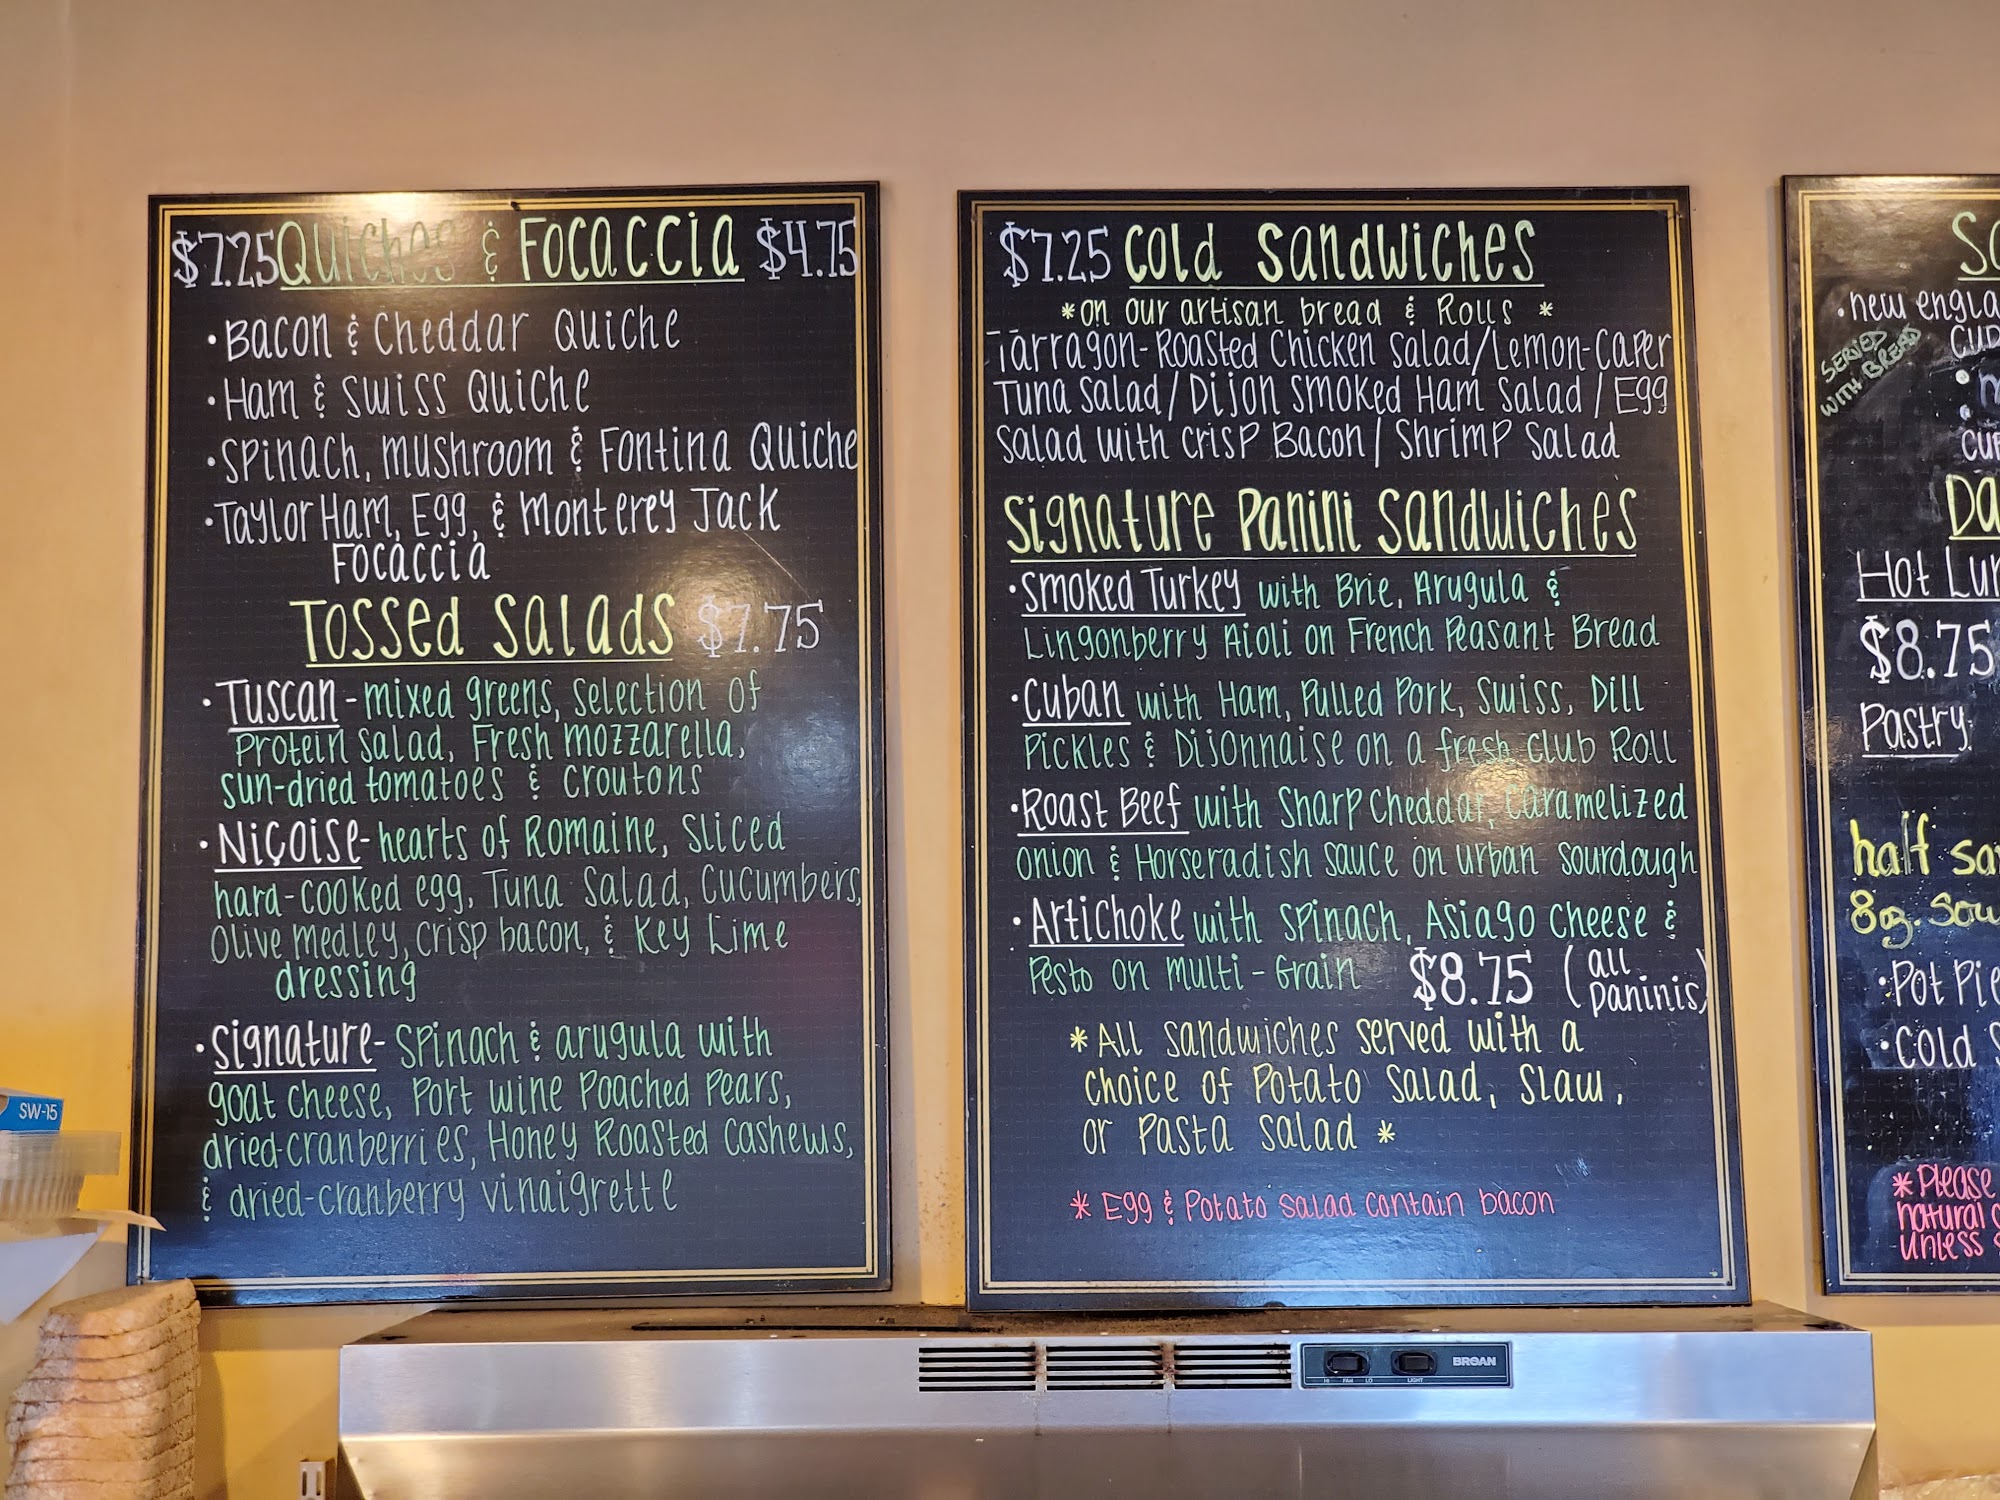 $7.25 Quiches & Focaccia $4.75
• Bacon & Cheddar Quiche
• Ham & Swiss Quiche
• Spinach, mushroom & Fontina Quiche
• Taylor Ham, Egg, & Monterey Jack
Focaccia
Tossed Salads $7.75
• Tuscan - mixed greens, selection of
Protein salad, Fresh mozzarella,
sun-dried tomatoes & croutons
• Niçoise - hearts of Romaine, sliced
hard-cooked egg, Tuna Salad, Cucumbers,
Olive medley, crisp bacon, & Key Lime
dressing
• Signature - Spinach & arugula with
goat cheese, Port wine Poached Pears,
dried-cranberries, Honey Roasted Cashews,
& dried-cranberry vinaigrette
$7.25 Cold Sandwiches
*on our artisan bread & Rolls *
Tarragon-Roasted Chicken Salad/Lemon-Caper
Tuna Salad/Dijon Smoked Ham Salad/Egg
Salad with crisp Bacon/Shrimp Salad
Signature Panini Sandwiches
• Smoked Turkey with Brie, Arugula &
Lingonberry Aioli on French Peasant Bread
• Cuban with Ham, Pulled Pork, Swiss, Dill
Pickles & Dijonnaise on a fresh club Roll
• Roast Beef with Sharp Cheddar, Caramelized
onion & Horseradish sauce on urban sourdough
• Artichoke with Spinach, Asiago cheese &
Pesto on multi-Grain $8.75 (all
paninis)
* All sandwiches served with a
choice of Potato Salad, Slaw,
or Pasta Salad *
* Egg & Potato salad contain bacon
• new
SERVED
WITH BREAD
Hot
$8.75
Pastry:
half
8oz.
• Pot Pie
• Cold
* Please
natural
unless
SW-15
BROAN
HI FAN LO LIGHT